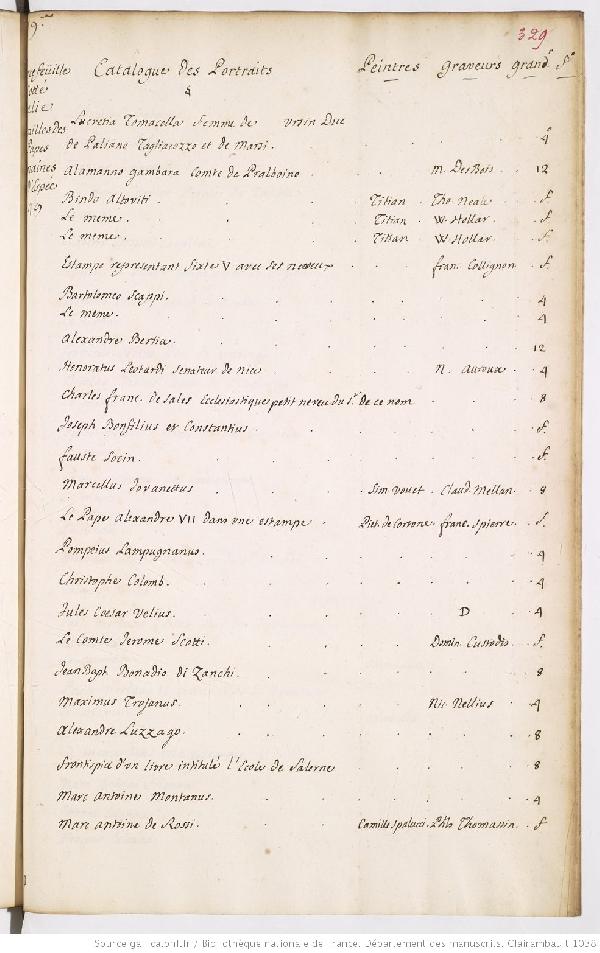 329
Catalogue des Portraits Peintres graveurs grand.r
Lucretia Tomacella femme de ursin Duc
de Paliano Tagliacozzo et de Marsi. 4
Alamanno gambara Comte de Pralboino M. DesBois 12
Bindo Altoviti. Titian Tho. Neale f.
Le meme. Titian W. Hollar f.
Le meme. Titian W. Hollar f.
Estampe representant Sixte V avec ses neveux franc. Collignon f.
Bartolomeo Scappi. 4
Le meme. 4
Alexandre Bertia. 12
Honoratus Leotardi Senateur de nice N. Auroux 4
Charles franc. de Sales Ecclesiastique petit neveu du S.t de ce nom 8
Joseph Bonfilius et Constantius. f.
fauste Socin. f.
Marcellus Jovanettus Sim. Vouet Claud. Mellan. 8
Le Pape Alexandre VII dans une estampe Piet. de Cortone franc. Spierre f.
Pompeius Lampugnanus. 4
Christophe Colomb. 4
Jules Coesar Velius. D 4
Le Comte Jerome Scotti. Domin. Custodis f.
Jean Bapt. Bonadio di Zanchi. 8
Maximus Trojanus. Nic. Nellius 4
Alexandre Luzzago. 8
frontispice d'un livre intitulé l'Ecole de Salerne 8
Marc Antoine Montanus. 4
Marc antoine de Rossi. Camille Spalucci. Phls Thomassin f.
Source gallica.bnf.fr / Bibliothèque nationale de France. Département des manuscrits. Clairambault 1038